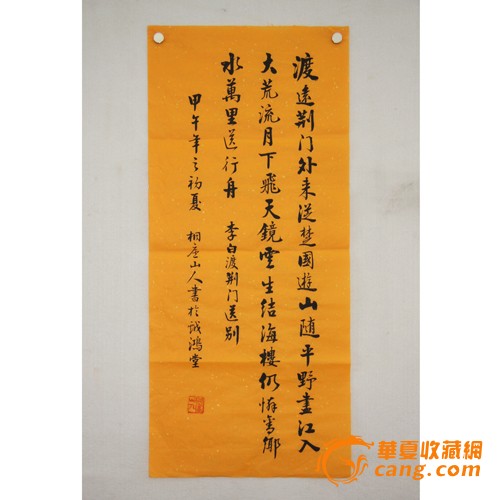 渡遠荆门外来從楚國遊山随平野盡江入
大荒流月下飛天鏡雲生结海樓仍憐故鄉
水萬里送行舟 李白渡荆门送别
甲午年之初夏 桐庐山人書於诚鸿堂
華夏收藏網
cang.com